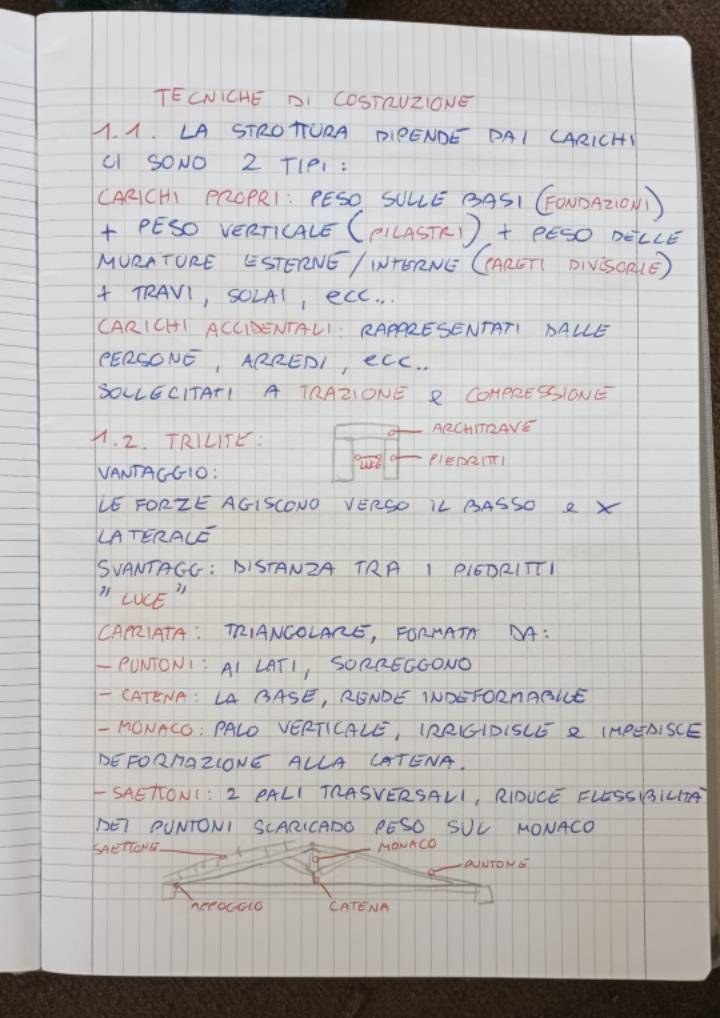 TECNICHE DI COSTRUZIONE
1.1. LA STRUTTURA DIPENDE DAI CARICHI
CI SONO 2 TIPI:
CARICHI PROPRI: PESO SULLE BASI (FONDAZIONI)
+ PESO VERTICALE (PILASTRI) + PESO DELLE
MURATURE ESTERNE/INTERNE (PARETI DIVISORIE)
+ TRAVI, SOLAI, ecc...
CARICHI ACCIDENTALI: RAPPRESENTATI DALLE
PERSONE, ARREDI, ecc..
SOLLECITATI A TRAZIONE e COMPRESSIONE
1.2. TRILITE:
ARCHITRAVE
LUCE
PIEDRITTI
VANTAGGIO:
LE FORZE AGISCONO VERSO IL BASSO e X
LATERALE
SVANTAGG: DISTANZA TRA I PIEDRITTI
"LUCE"
CAPRIATA: TRIANGOLARE, FORMATA DA:
- PUNTONI: AI LATI, SORREGGONO
- CATENA: LA BASE, RENDE INDEFORMABILE
- MONACO: PALO VERTICALE, IRRIGIDISCE e IMPEDISCE
DEFORMAZIONE ALLA CATENA.
- SAETTONI: 2 PALI TRASVERSALI, RIDUCE FLESSIBILITÀ
DEI PUNTONI SCARICADO PESO SUL MONACO
SAETTONE
MONACO
PUNTONE
APPOGGIO
CATENA